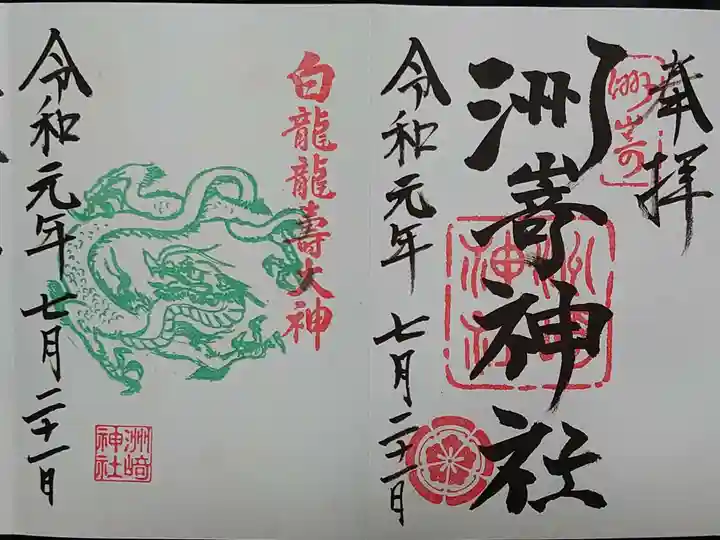 奉拝
洲嵜
洲嵜神社
神社
令和元年 七月二十一日
白龍龍壽大神
洲崎
神社
令和元年 七月二十一日